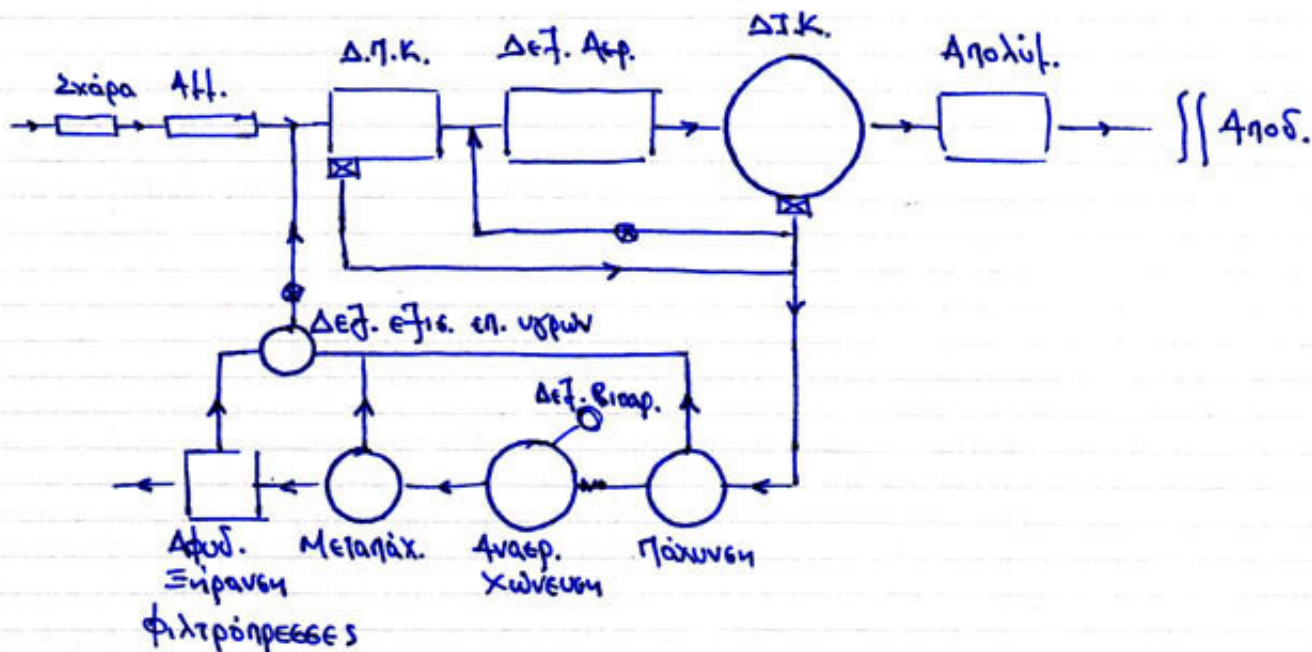 Σχάρα
Αμμ.
Δ.Π.Κ.
Δεξ. Αερ.
Δ.Τ.Κ.
Απολύμ.
Αποδ.
Δεξ. εξισ. επ. υγρών
Δεξ. βιοαερ.
Αφυδ.
Ξήρανση
φιλτρόπρεσσες
Μεταπάχ.
Αναερ.
Χώνευση
Πάχυνση